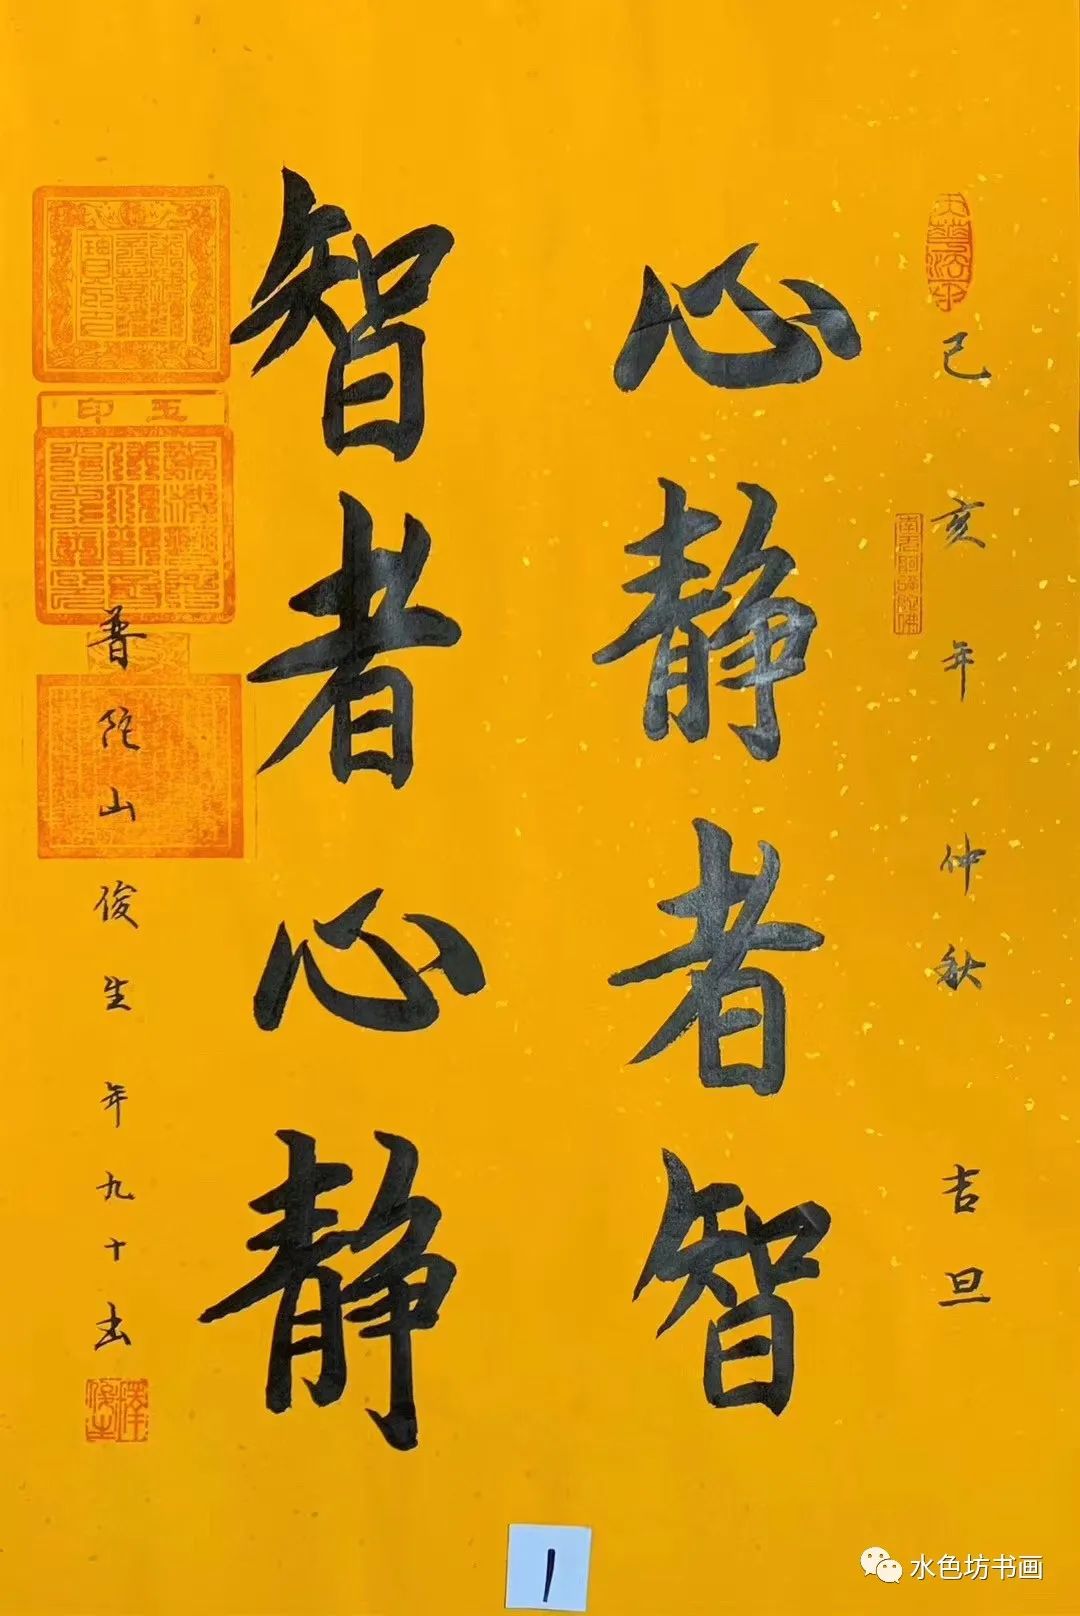 己亥年仲秋吉旦
心静者智
智者心静
普陀山俊生年九十书
玉印
1
水色坊书画